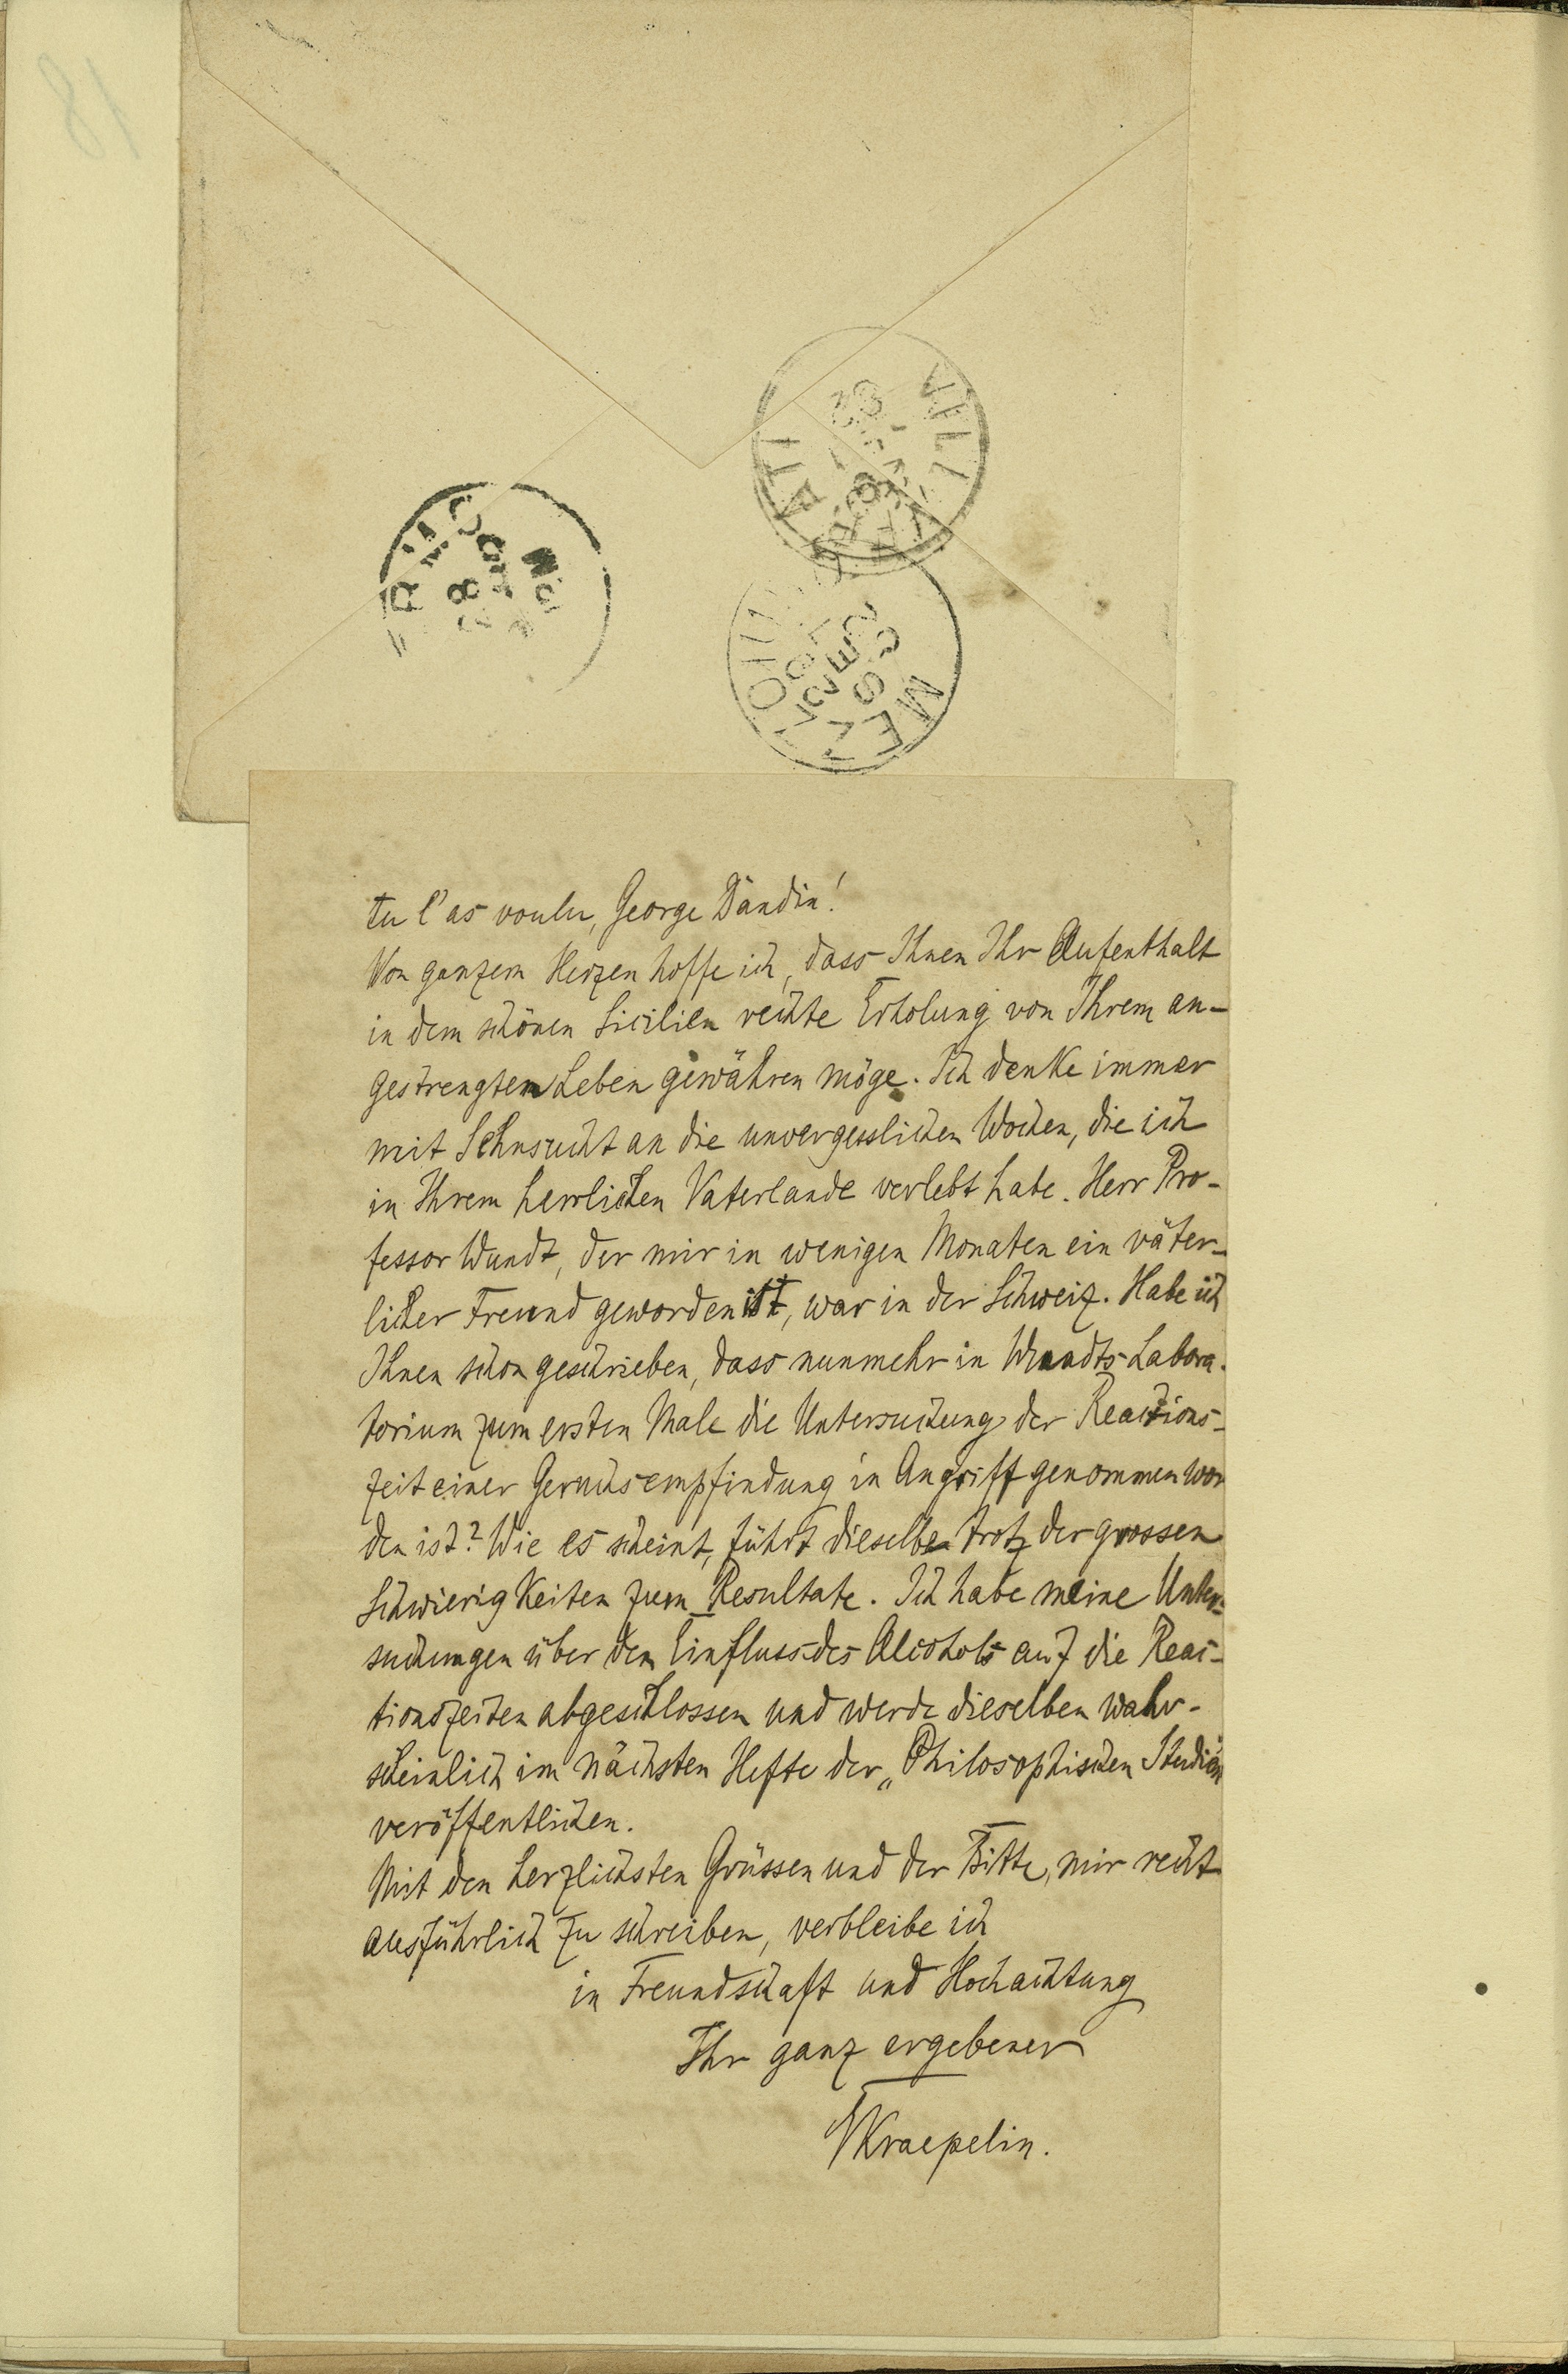 18
VILLA ATI
MEZZOIUSO
tu l'as voulu, George Dandin!
Von ganzem Herzen hoffe ich, dass Ihnen Ihr Aufenthalt
in dem schönen Sicilien rechte Erholung von Ihrem an-
gestrengtem Leben gewähren möge. Ich denke immer
mit Sehnsucht an die unvergesslichen Wochen, die ich
in Ihrem herrlichen Vaterlande verlebt habe. Herr Pro-
fessor Wundt, der mir in wenigen Monaten ein väter-
licher Freund geworden ist, war in der Schweiz. Habe ich
Ihnen schon geschrieben, dass nunmehr in Wundts Labora-
torium zum ersten Male die Untersuchung der Reactions-
zeit einer Geruchsempfindung in Angriff genommen wor
den ist? Wie es scheint, führt dieselbe trotz der grossen
Schwierigkeiten zum Resultate. Ich habe meine Unter-
suchungen über den Einfluss des Alcohols auf die Reac-
tionszeiten abgeschlossen und werde dieselben wahr-
scheinlich im nächsten Hefte der „Philosophischen Studien
veröffentlichen.
Mit den herzlichsten Grüssen und der Bitte, mir recht
ausführlich zu schreiben, verbleibe ich
in Freundschaft und Hochachtung
Ihr ganz ergebener
Kraepelin.